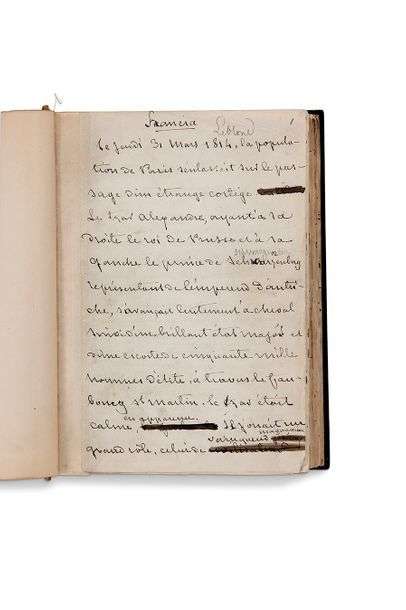 Francia
Leblond
Le jeudi 31 Mars 1814, la popula-
tion de Paris seulassait sur le pas-
sage d'un étrange cortège
Le Tzar Alexandre, ayant à sa
droite le roi de Prusse et à sa
gauche le prince de Schwarzenberg
représentant de l'empereur d'Autri-
che, s'avançait lentement à cheval
suivi d'un brillant état major et
d'une escorte de cinquante mille
hommes d'élite, à travers le fau-
bourg St Martin. le tzar était
en apparence
calme, Il jouait un
vainqueur magnanime
grand rôle, celui de